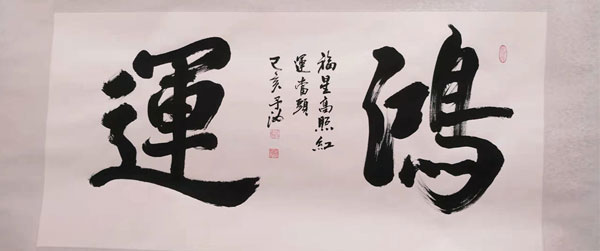 鴻運
福星高照紅
運當頭
己亥